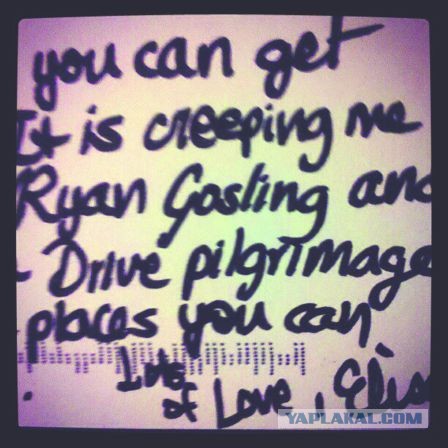 you can get
It is creeping me
Ryan Gosling and
- Drive pilgrimage
places you can
Lots
of Love, Elis
YAPLAKAL.COM